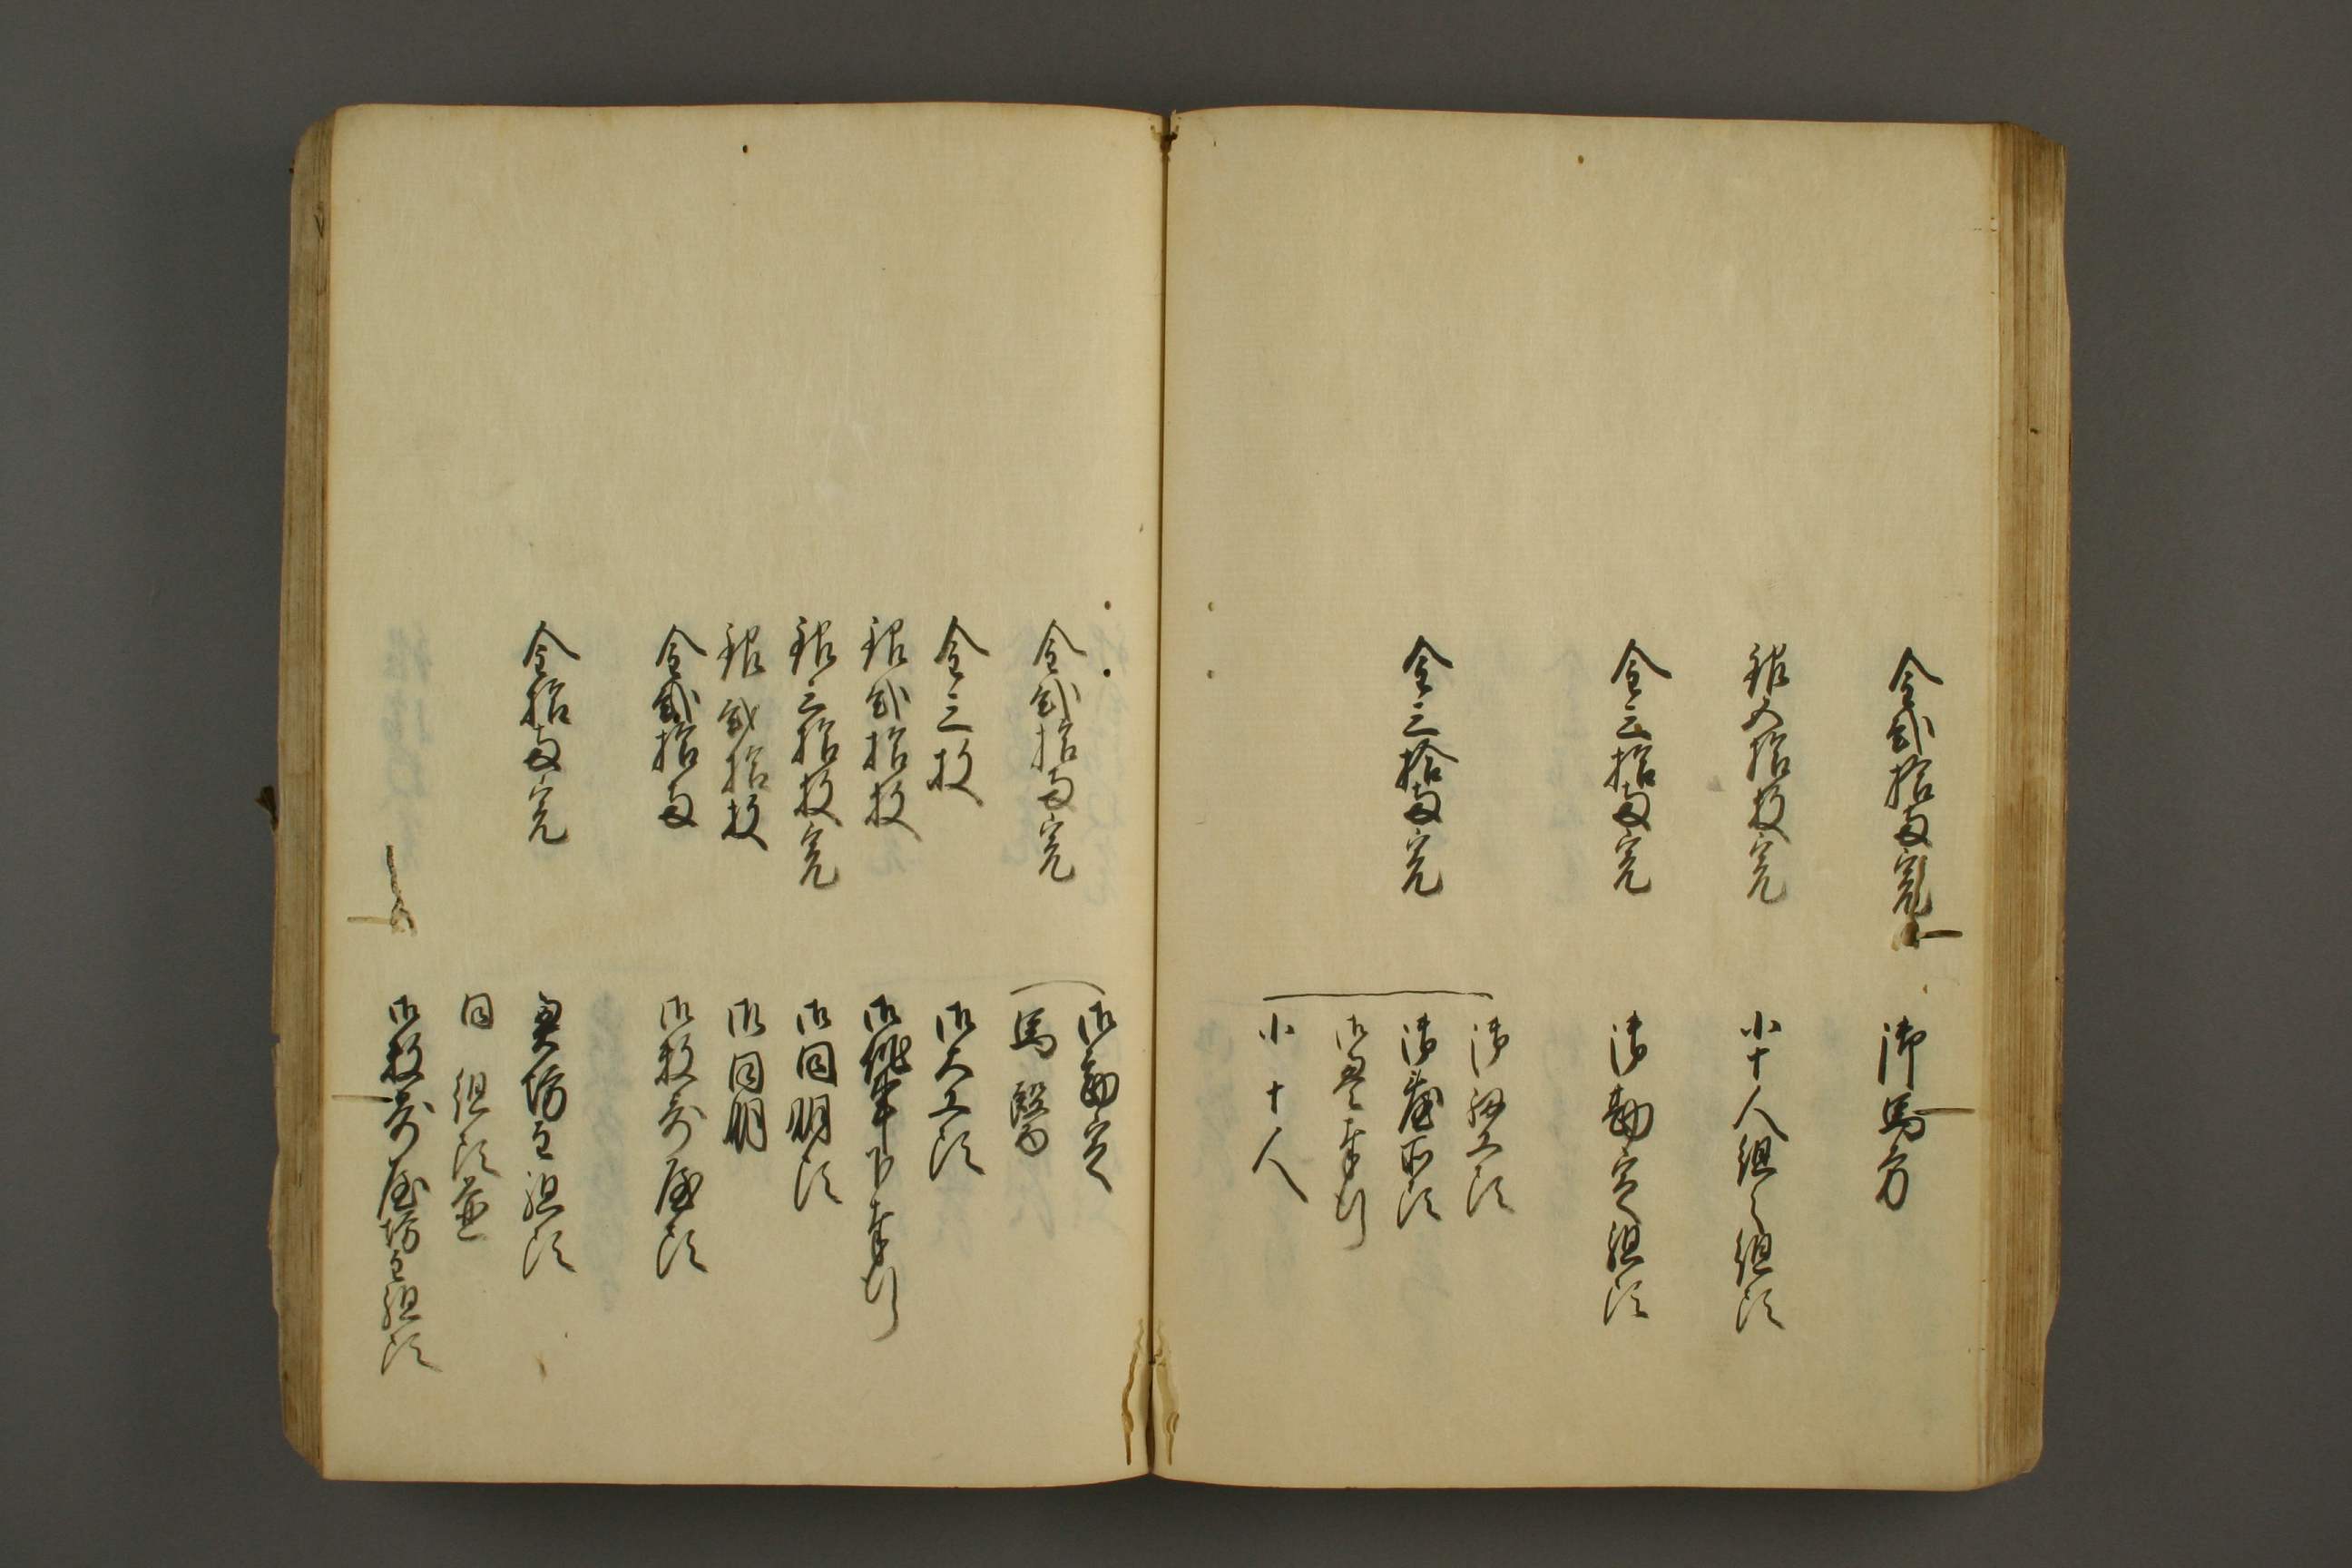 金弐拾両宛
御馬方
銀五拾枚宛
小十人組之組頭
金三拾両宛
御勘定組頭
金三拾両宛
御細工頭
御臺所頭
御畳奉行
小十人
金弐拾両宛
御勘定
馬醫
金三枚
御大工頭
銀弐拾枚
御作事下奉行
銀三拾枚宛
御同朋頭
銀弐拾枚
御同朋
金弐拾両
御数寄屋頭
金拾両宛
奥坊主組頭
同組頭並
御数寄屋坊主組頭